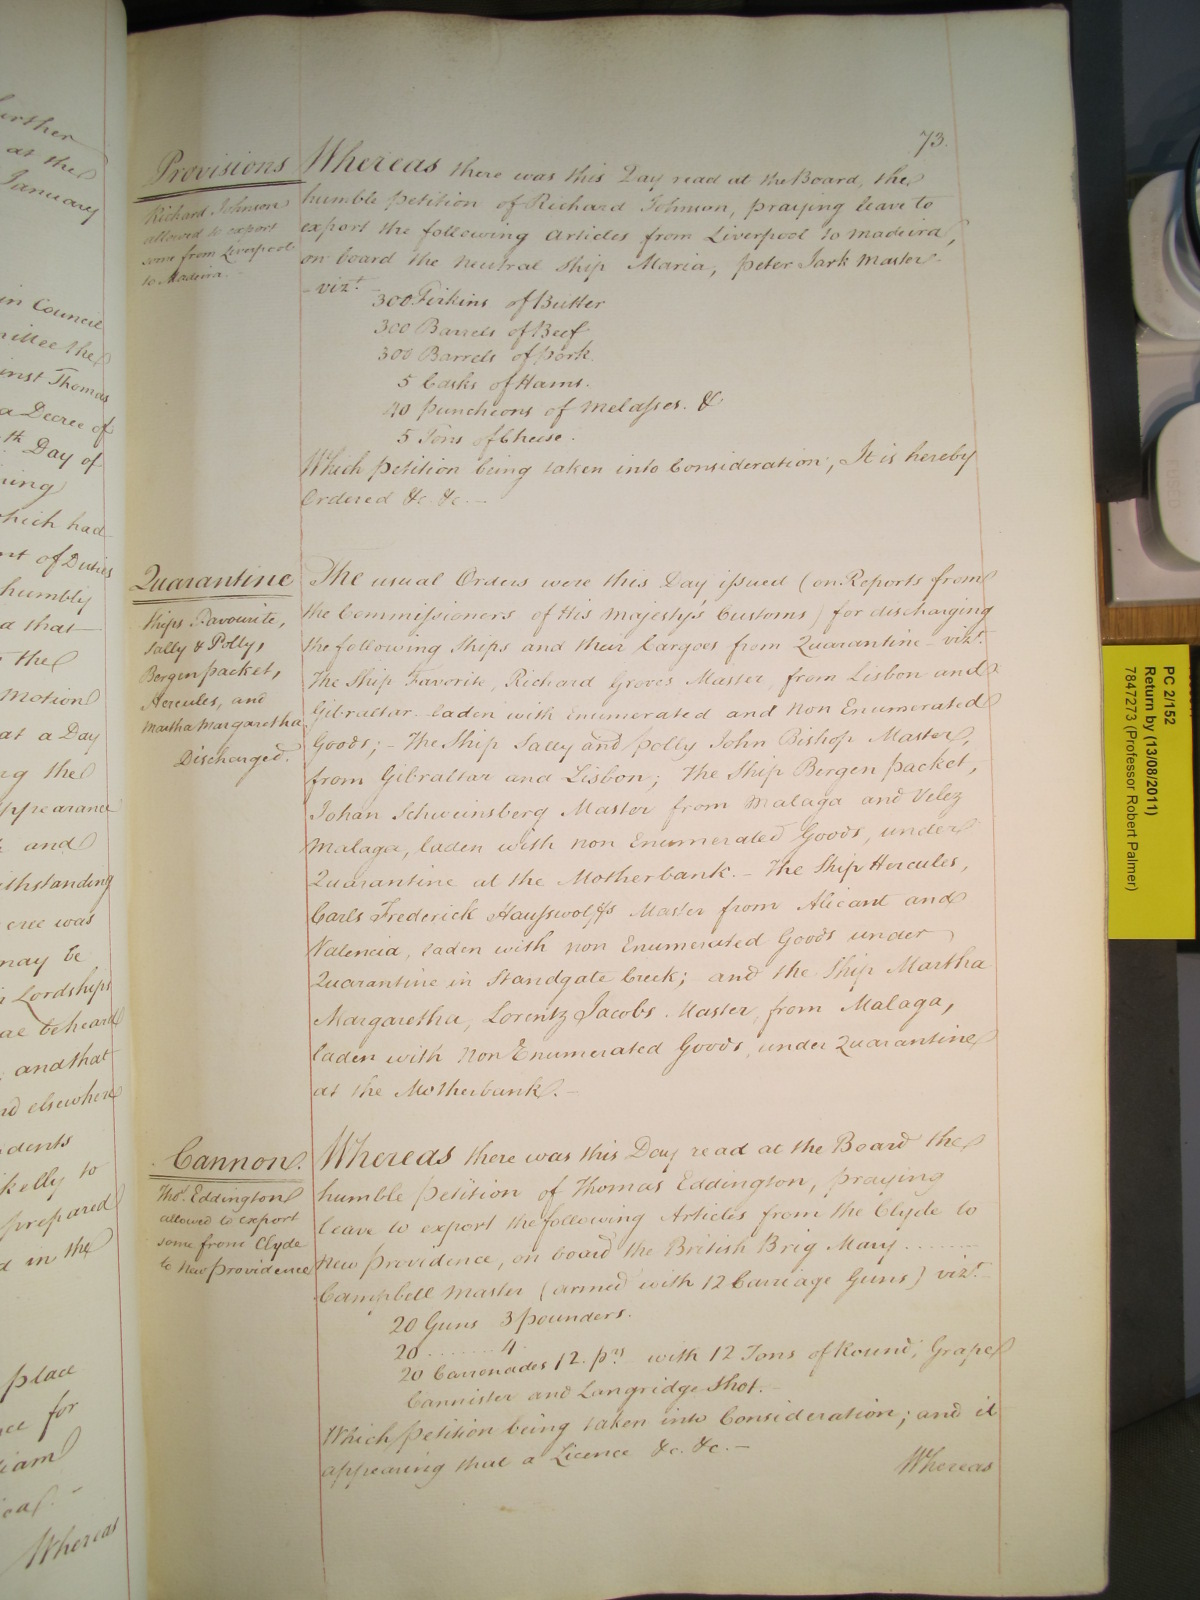 urther
at the
January
in Council
mittee the
inst Thomas
a Decree of
th Day of
ning
which had
nt of Duties
humbly
a that
the
Motion
at a Day
ng the
ppearance
and
ithstanding
cree was
may be
Lordships
ae be heard
and that
nd elsewhere
dents
kelly to
prepared
d in the
place
ce for
iam
Whereas
73.
Provisions
Richard Johnson
allowed to export
some from Liverpool
to Madeira.
Whereas there was this Day read at the Board, the
humble petition of Richard Johnson, praying leave to
export the following Articles from Liverpool to Madeira,
on board the Neutral Ship Maria, Peter Jark Master
- vizt.
300 Firkins of Butter
300 Barrels of Beef
300 Barrels of Pork.
5 Casks of Hams.
40 Puncheons of Melasses. &
5 Tons of Cheese.
Which petition being taken into Consideration, It is hereby
Ordered &c. &c. -
Quarantine
Ships Favourite,
Sally & Polly,
Bergen packet,
Hercules, and
Martha Margaretha
Discharged.
The usual Orders were this Day issued (on Reports from
the Commissioners of His Majesty's Customs) for discharging
the following Ships and their Cargoes from Quarantine - vizt.
The Ship Favorite, Richard Groves Master, from Lisbon and
Gibraltar laden with Enumerated and Non Enumerated
Goods; - The Ship Sally and Polly John Bishop Master,
from Gibraltar and Lisbon; The Ship Bergen Packet,
Johan Schweinsberg Master from Malaga and Velez
Malaga, laden with non Enumerated Goods, under
Quarantine at the Motherbank. - The Ship Hercules,
Carls Frederick Hausswolffs Master from Alicant and
Valencia, laden with non Enumerated Goods under
Quarantine in Standgate Creek; and the Ship Martha
Margaretha, Lorentz Jacobs Master, from Malaga,
laden with Non Enumerated Goods, under Quarantine
at the Motherbank. -
Cannon.
Thos. Eddington
allowed to export
some from Clyde
to New providence
Whereas there was this Day read at the Board the
humble petition of Thomas Eddington, praying
leave to export the following Articles from the Clyde to
New Providence, on board the British Brig Mary ........
Campbell Master (armed with 12 Carriage Guns) vizt.
20 Guns 3 pounders.
20 ........ 4
20 Carronades 12. prs with 12 Tons of Round, Grape
Cannister and Langridge Shot. -
Which petition being taken into Consideration; and it
appearing that a Licence &c. &c. -
Whereas
PC 2/152
Return by (13/08/2011)
7847273 (Professor Robert Palmer)